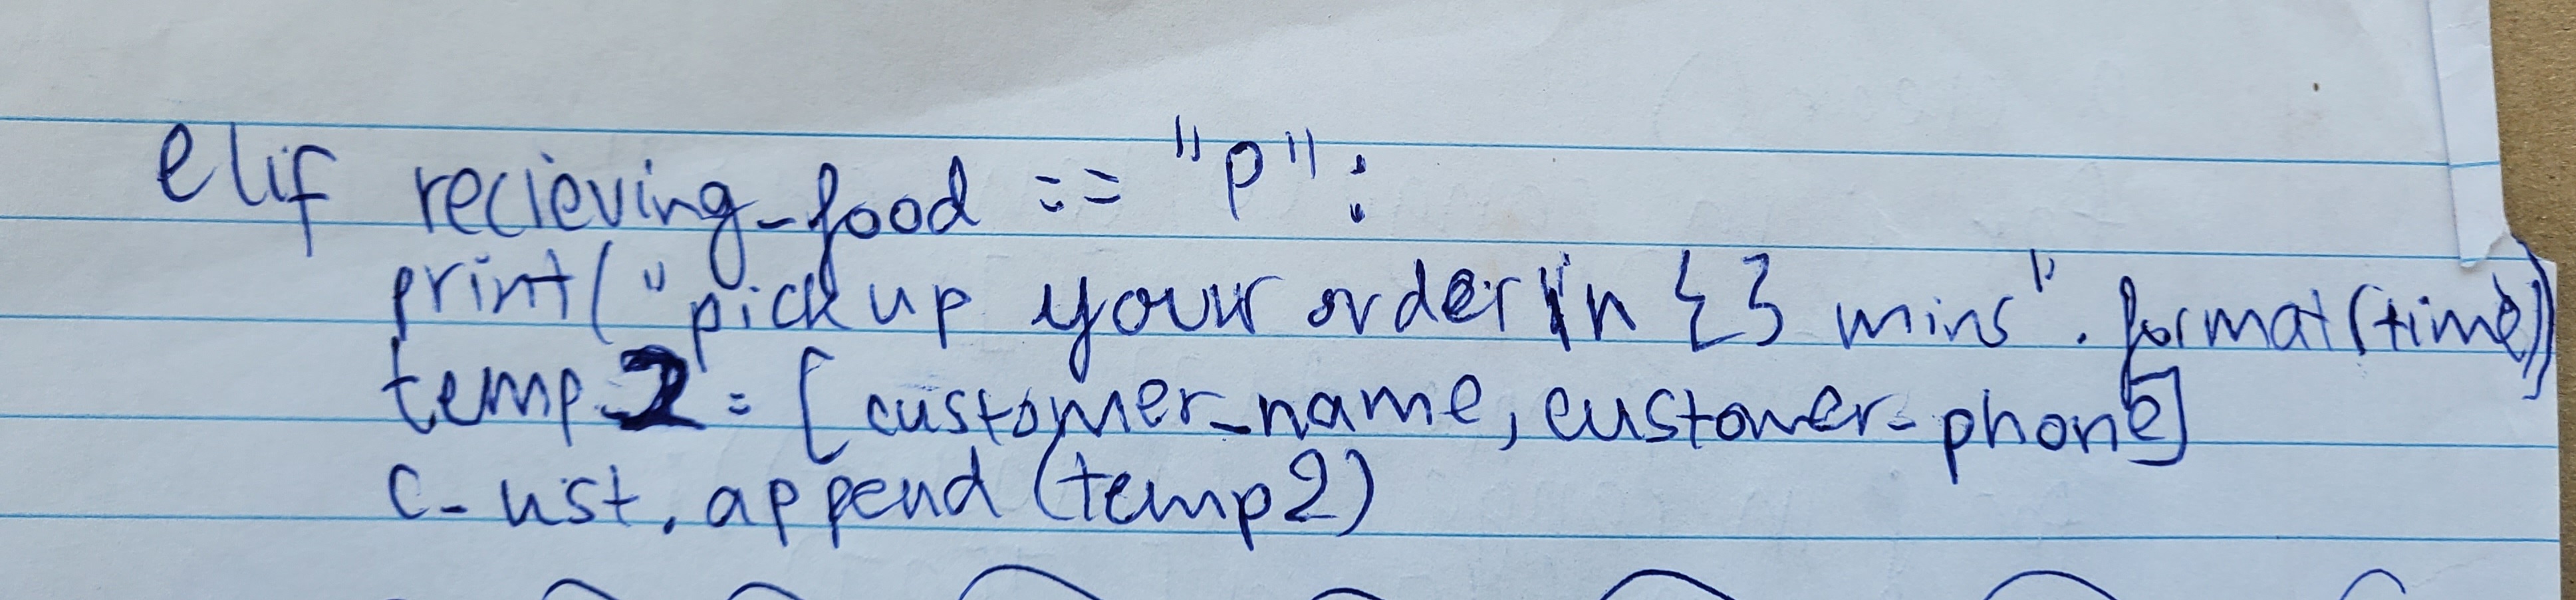 elif recieving_food == "P":
print("pick up your order in {} mins".format(time))
temp2 = [customer_name, customer_phone]
c_list.append(temp2)